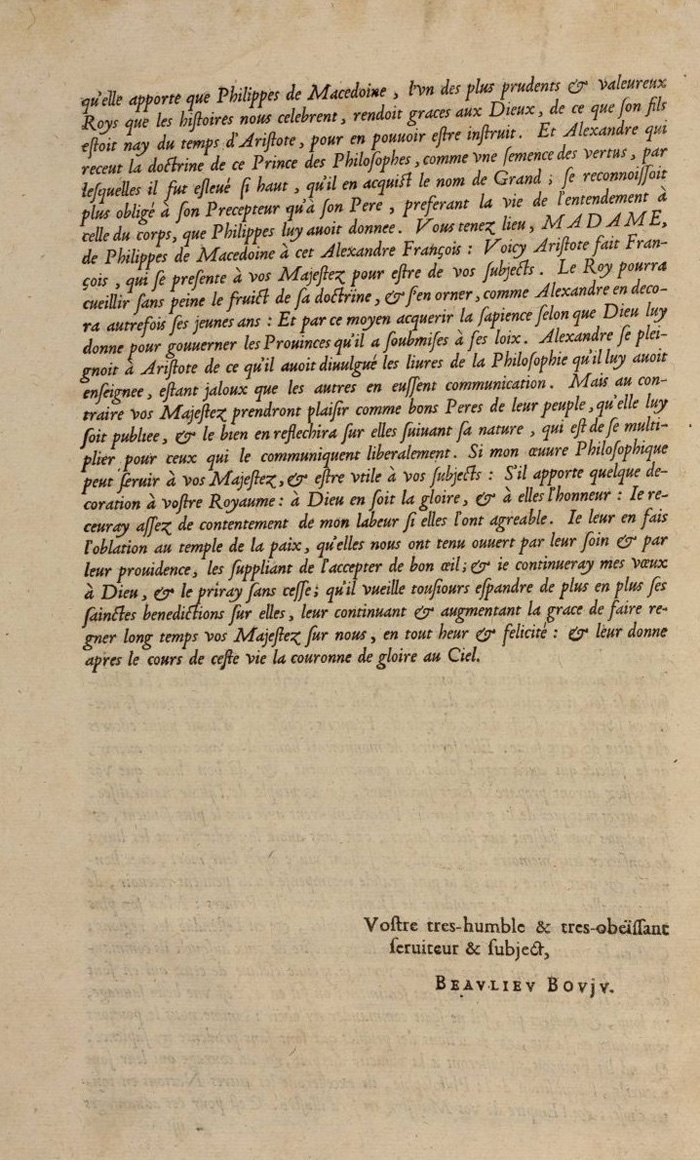 qu'elle apporte que Philippes de Macedoine, l'vn des plus prudents & valeureux
Roys que les hiſtoires nous celebrent, rendoit graces aux Dieux, de ce que ſon fils
eſtoit nay du temps d'Ariſtote, pour en pouuoir eſtre inſtruit. Et Alexandre qui
receut la doctrine de ce Prince des Philoſophes, comme vne ſemence des vertus, par
leſquelles il fut eſleué ſi haut, qu'il en acquiſt le nom de Grand; ſe reconnoiſſoit
plus obligé à ſon Precepteur qu'à ſon Pere, preferant la vie de l'entendement à
celle du corps, que Philippes luy auoit donnee. Vous tenez lieu, MADAME,
de Philippes de Macedoine à cet Alexandre François: Voicy Ariſtote fait Fran-
çois, qui ſe preſente à vos Majeſtez pour eſtre de vos ſubjects. Le Roy pourra
cueillir ſans peine le fruict de ſa doctrine, & s'en orner, comme Alexandre en deco-
ra autrefois ſes jeunes ans: Et par ce moyen acquerir la ſapience ſelon que Dieu luy
donne pour gouuerner les Prouinces qu'il a ſoubmiſes à ſes loix. Alexandre ſe plei-
gnoit à Ariſtote de ce qu'il auoit diuulgué les liures de la Philoſophie qu'il luy auoit
enſeignee, eſtant jaloux que les autres en euſſent communication. Mais au con-
traire vos Majeſtez prendront plaiſir comme bons Peres de leur peuple, qu'elle luy
ſoit publiee, & le bien en reflechira ſur elles ſuiuant ſa nature, qui eſt de ſe multi-
plier pour ceux qui le communiquent liberalement. Si mon œuure Philoſophique
peut ſeruir à vos Majeſtez, & eſtre vtile à vos ſubjects: S'il apporte quelque de-
coration à voſtre Royaume: à Dieu en ſoit la gloire, & à elles l'honneur: Ie re-
ceuray aſſez de contentement de mon labeur ſi elles l'ont agreable. Ie leur en fais
l'oblation au temple de la paix, qu'elles nous ont tenu ouuert par leur ſoin & par
leur prouidence, les ſuppliant de l'accepter de bon œil; & ie continueray mes vœux
à Dieu, & le priray ſans ceſſe; qu'il vueille touſiours eſpandre de plus en plus ſes
ſainctes benedictions ſur elles, leur continuant & augmentant la grace de faire re-
gner long temps vos Majeſtez ſur nous, en tout heur & felicité: & leur donne
apres le cours de ceſte vie la couronne de gloire au Ciel.
Voſtre tres-humble & tres-obeïſſant
ſeruiteur & ſubject,
BEAVLIEV BOVJV.